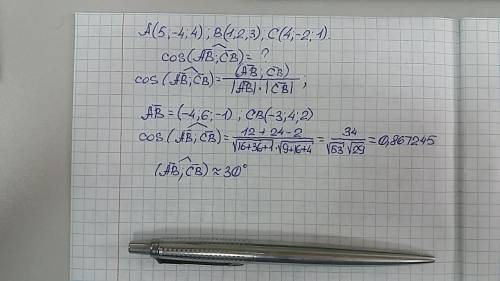 A(5,-4;4); B(1,2,3), C(4,-2;1).
cos(A͞B͞;C͞B͞)=?
cos(A͞B͞;C͞B͞)=(A͞B͞;C͞B͞)/|A͞B͞|·|C͞B͞|;
A͞B͞=(-4;6,-1), CB(-3;4;2)
cos(A͞B͞;C͞B͞)=12+24-2/√16+36+1·√9+16+4=34/√53√29=0,867245
(A͞B͞;C͞B͞)≈30°